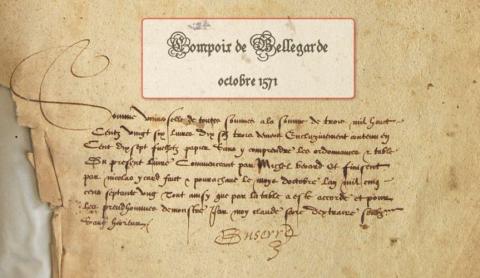 Compoix de Bellegarde
octobre 1571
Somme universelle de toutes sommes a la somme de trois mil huict
Centz vingt six livres dix solz trois deniers Encluzivement contenu en
Cent dix sept fuelhetz papier sans y comprendre les ordonnances et table
Du present livre Commencent par Mighel berard et finisent
par nicolau ycard fait le moys doctobre Lan mil cinq
cens septante ung Tout ainsy que par la table a este accorde et pour
Les preudhommes demonstré Par moy claude